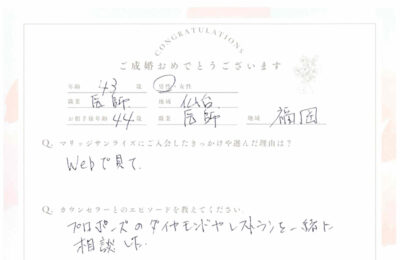 CONGRATULATIONS
ご成婚おめでとうございます
年齢 43 歳 男性・女性
職業 医師 地域 仙台
お相手様年齢 44 歳 職業 医師 地域 福岡
Q. マリッジサンライズにご入会したきっかけや選んだ理由は?
Webで見て
Q. カウンセラーとのエピソードを教えてください
プロポーズのダイヤモンドやレストランを一緒に
相談した。